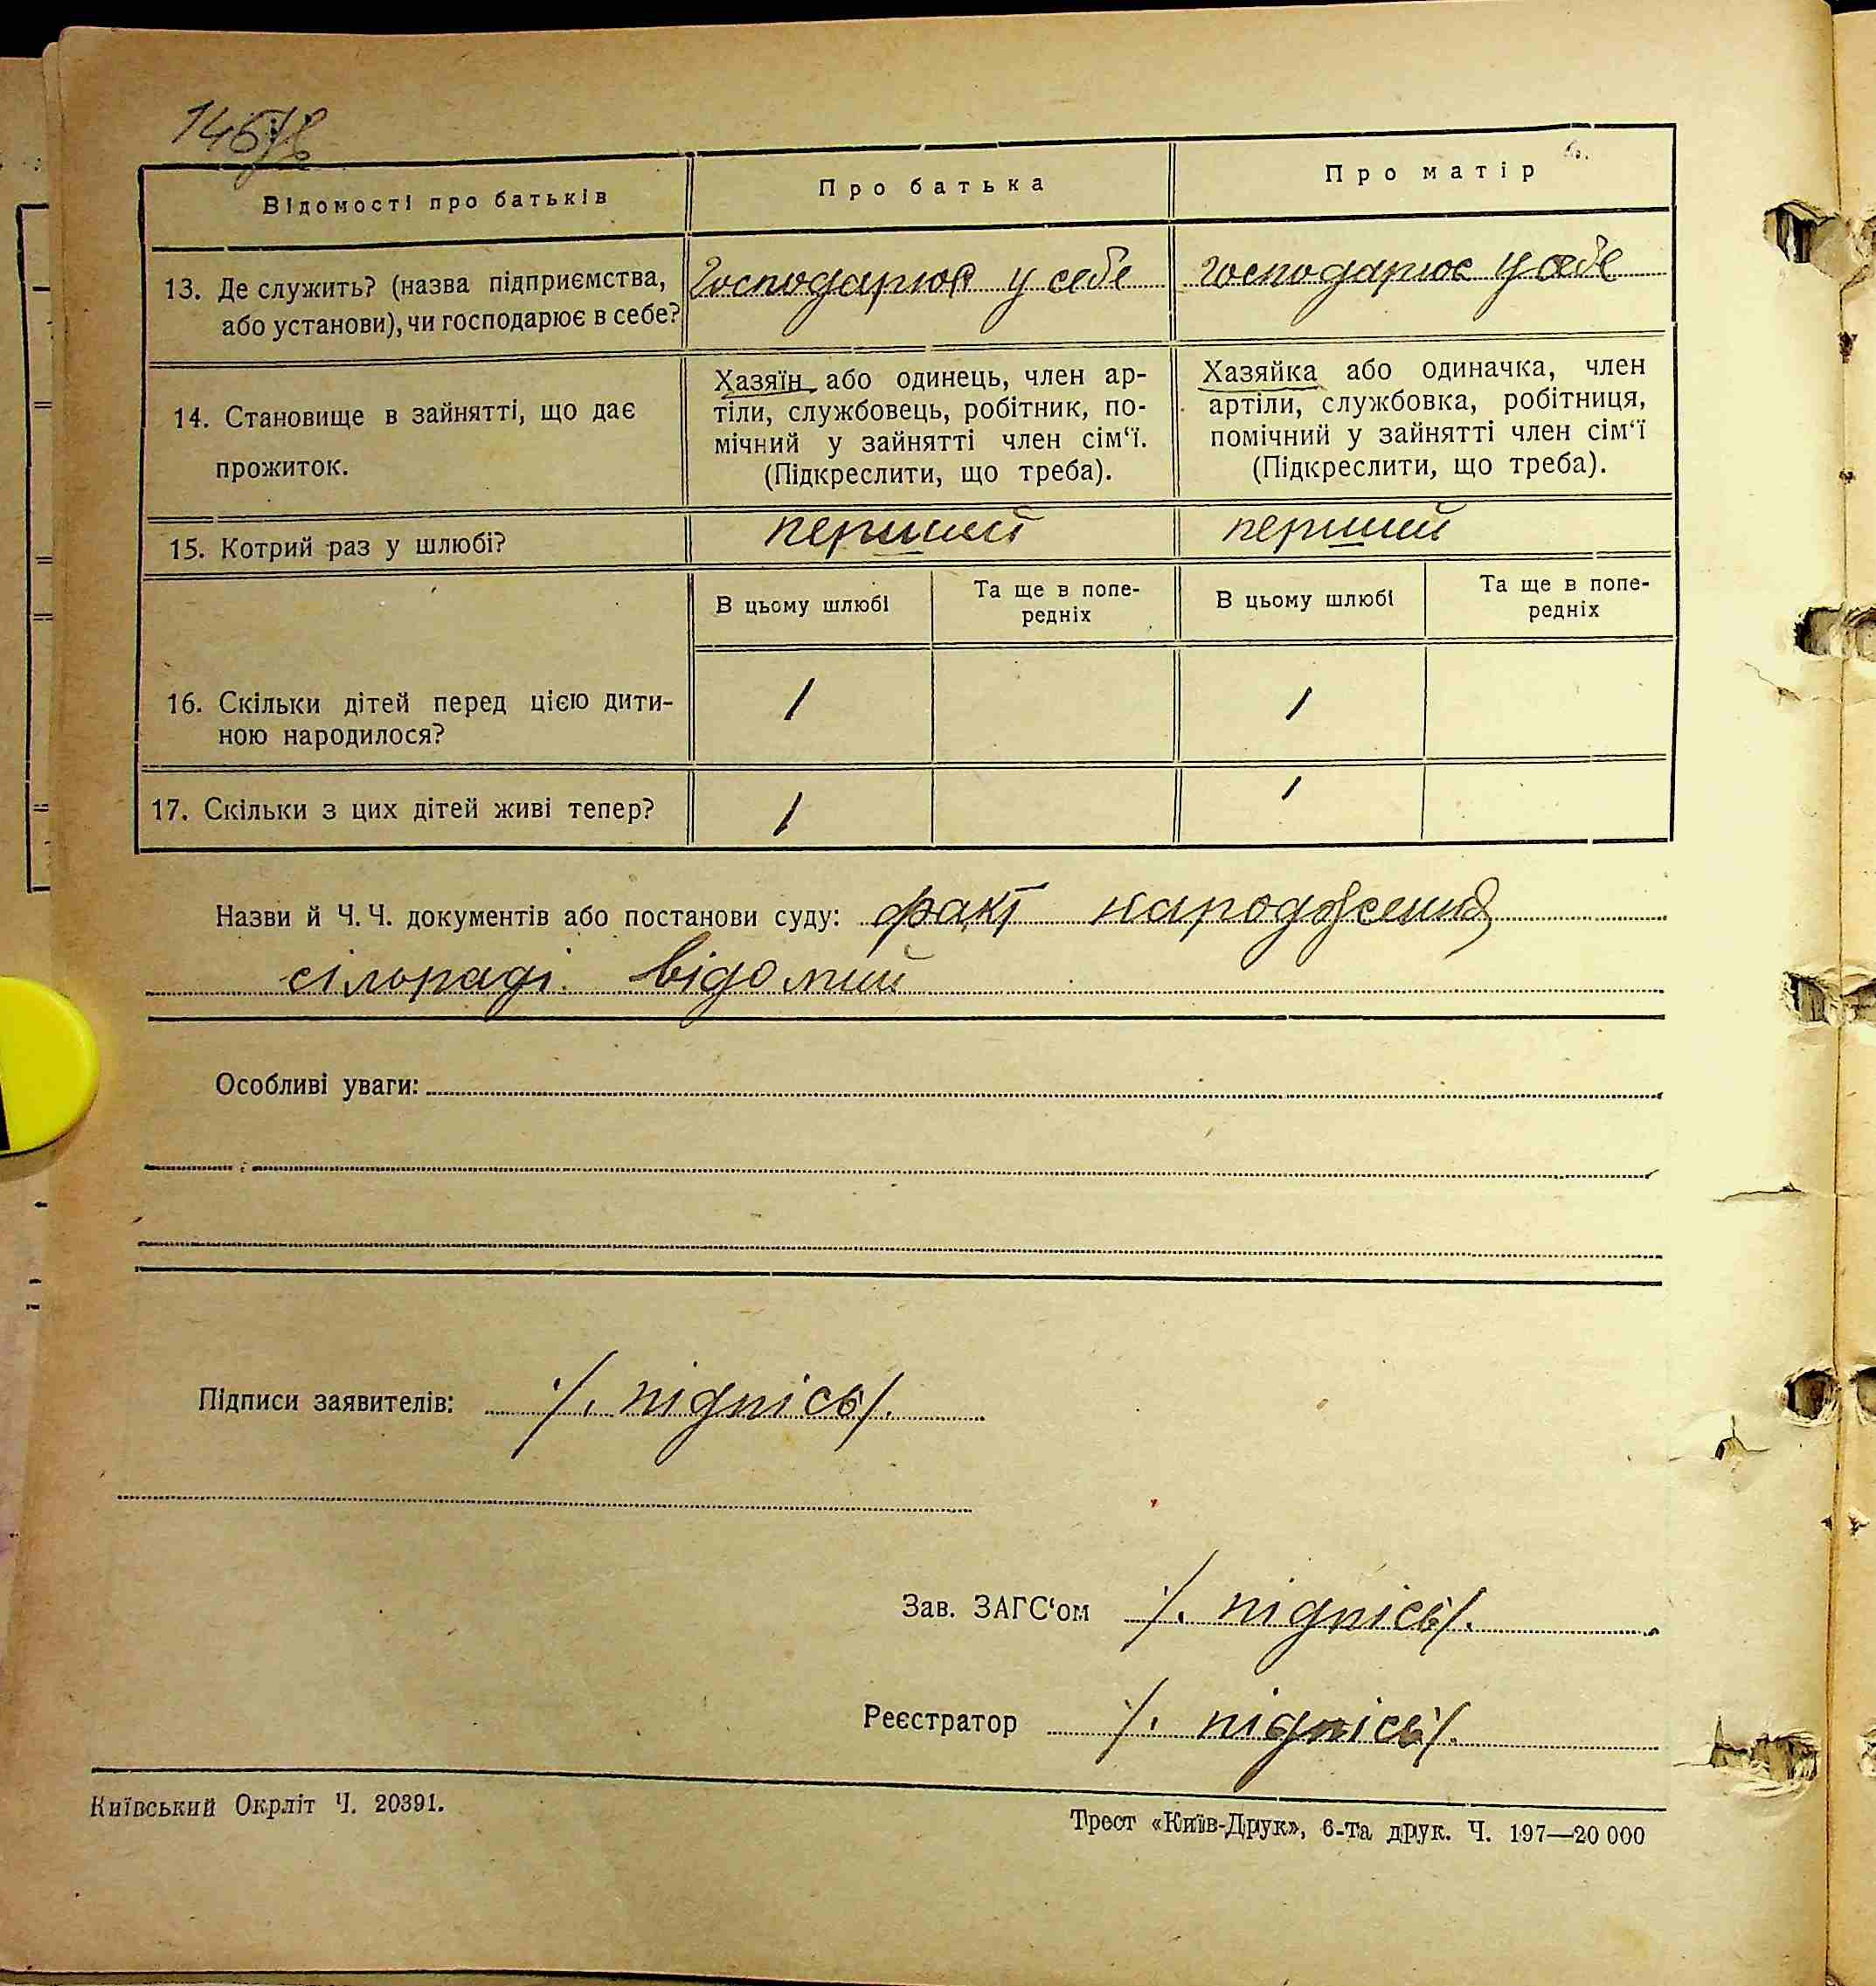 Відомості про батьків
Про батька
Про матір
13. Де служить? (назва підприємства,
або установи), чи господарює в себе?
Господарює у себе
господарює у себе
14. Становище в зайнятті, що дає
прожиток.
Хазяїн або одинець, член ар-
тіли, службовець, робітник, по-
мічний у зайнятті член сім'ї.
(Підкреслити, що треба).
Хазяйка або одиначка, член
артіли, службовка, робітниця,
помічний у зайнятті член сім'ї
(Підкреслити, що треба).
15. Котрий раз у шлюбі?
перший
перший
В цьому шлюбі
Та ще в попе-
редніх
В цьому шлюбі
Та ще в попе-
редніх
16. Скільки дітей перед цією дити-
ною народилося?
1
1
17. Скільки з цих дітей живі тепер?
1
1
Назви й Ч. Ч. документів або постанови суду: факт народження
сільраді відомий
Особливі уваги:
Підписи заявителів: /. підпісь/.
Зав. ЗАГС'ом /. підпісь/.
Реєстратор /. підпісь/.
Київський Окрліт Ч. 20391.
Трест «Київ-Друк», 6-та друк. Ч. 197—20 000